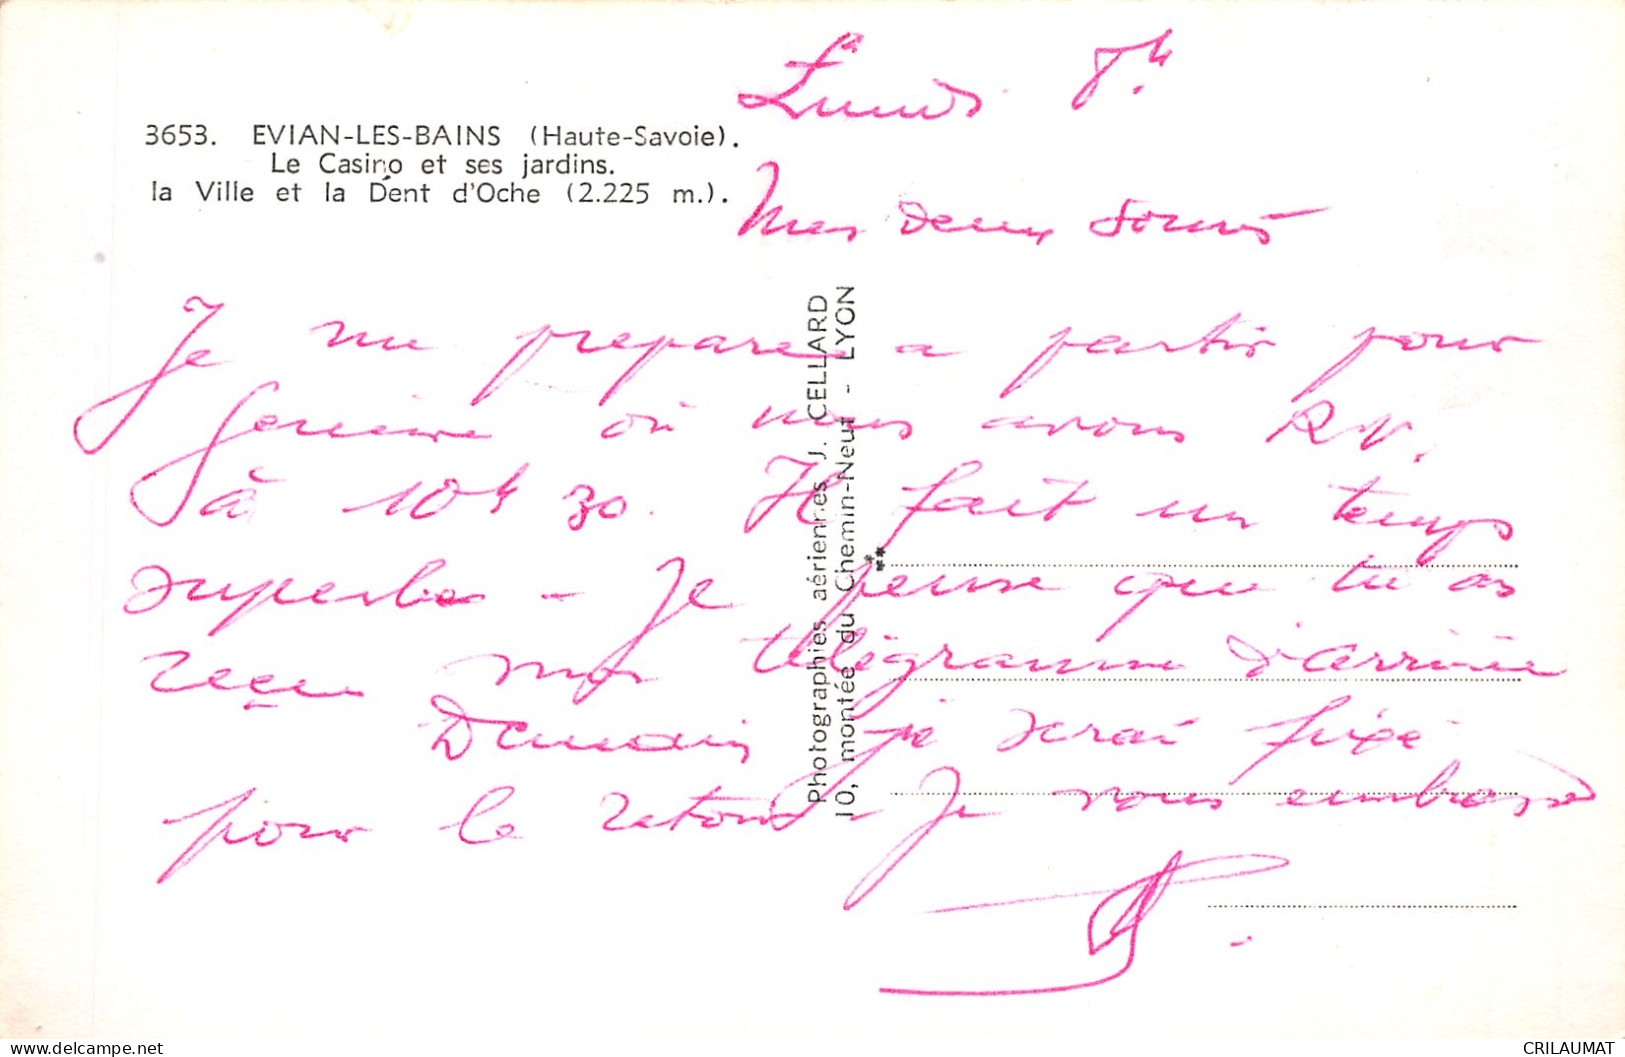 Lundi 8h.
3653. EVIAN-LES-BAINS (Haute-Savoie).
Le Casino et ses jardins.
la Ville et la Dent d'Oche (2.225 m.).
Mes deux
Je me prepare a partir pour
Genève où nous avons RV.
à 10h 30. Il fait un temps
superbe - Je pense que tu as
reçu mon télégramme d'arrivée
Demain je serai fixé
pour le retour - Je vous embrasse
Photographies aériennes J. CELLARD
10, montée du Chemin-Neuf - LYON
CRILAUMAT
delcampe.net